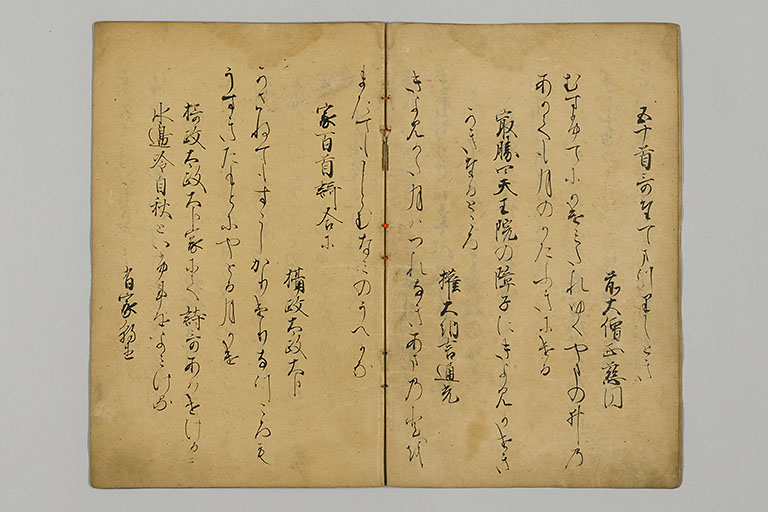 五十首哥たてまつりしとき
前大僧正慈円
むすふてにかけみたれゆくやまの井の
あかても月のかたふきにける
最勝四天王院の障子にきよみかせき
かきたるところ
権大納言通光
きよみかた月はつれなきあまの戸を
またてもしらむなみのうへかな
家百首謌合に
摂政太政大臣
かさねてもすゝしかりけりなつころも
うすきたもとにやとる月かけ
摂政太政大臣家にて詩哥あはせけるに
水邊冷自秋といふ事をよみける
有家朝臣